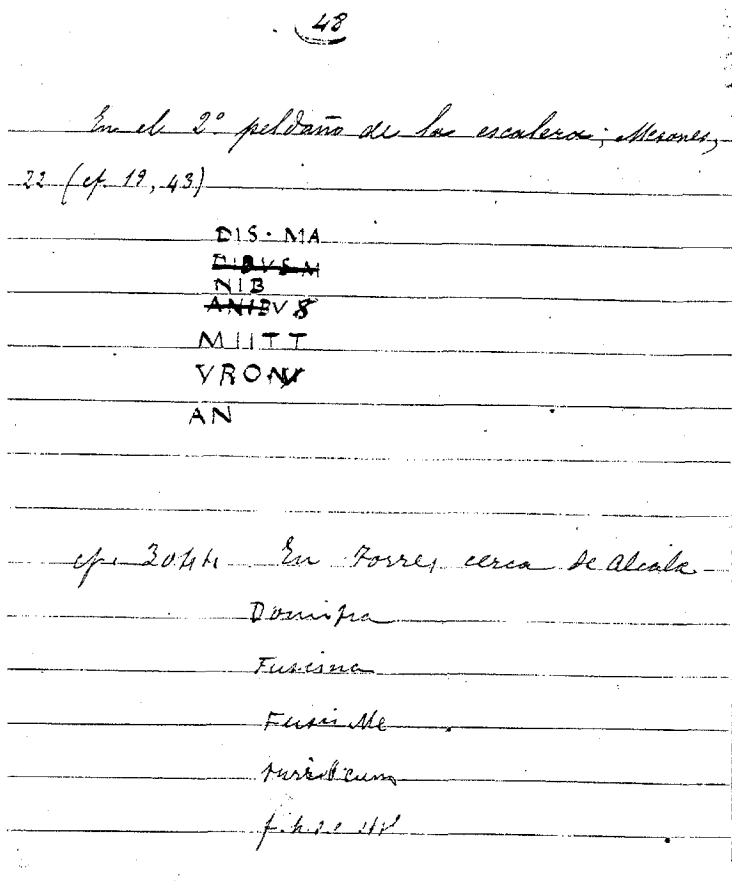 48
En el 2º peldaño de la escalera; Mesones,
22 (cf. 19, 43)
DIS · MA
DIBVS M
NIB
ANIBVS
MIITT
VRON
AN
cf. 3044 En Torres, cerca de Alcalá
Domi
Fuscina
Fusci Me